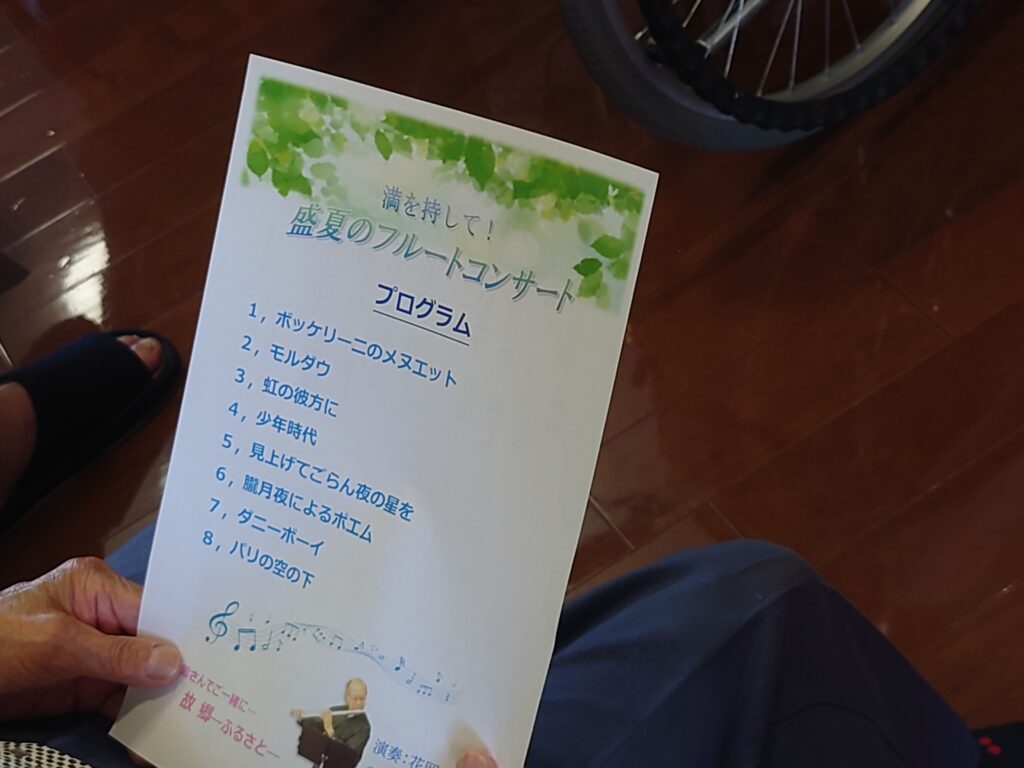 満を持して！
盛夏のフルートコンサート
プログラム
1，ボッケリーニのメヌエット
2，モルダウ
3，虹の彼方に
4，少年時代
5，見上げてごらん夜の星を
6，朧月夜によるポエム
7，ダニーボーイ
8，パリの空の下
皆さんでご一緒に…
故 郷―ふるさと―
演奏：花岡